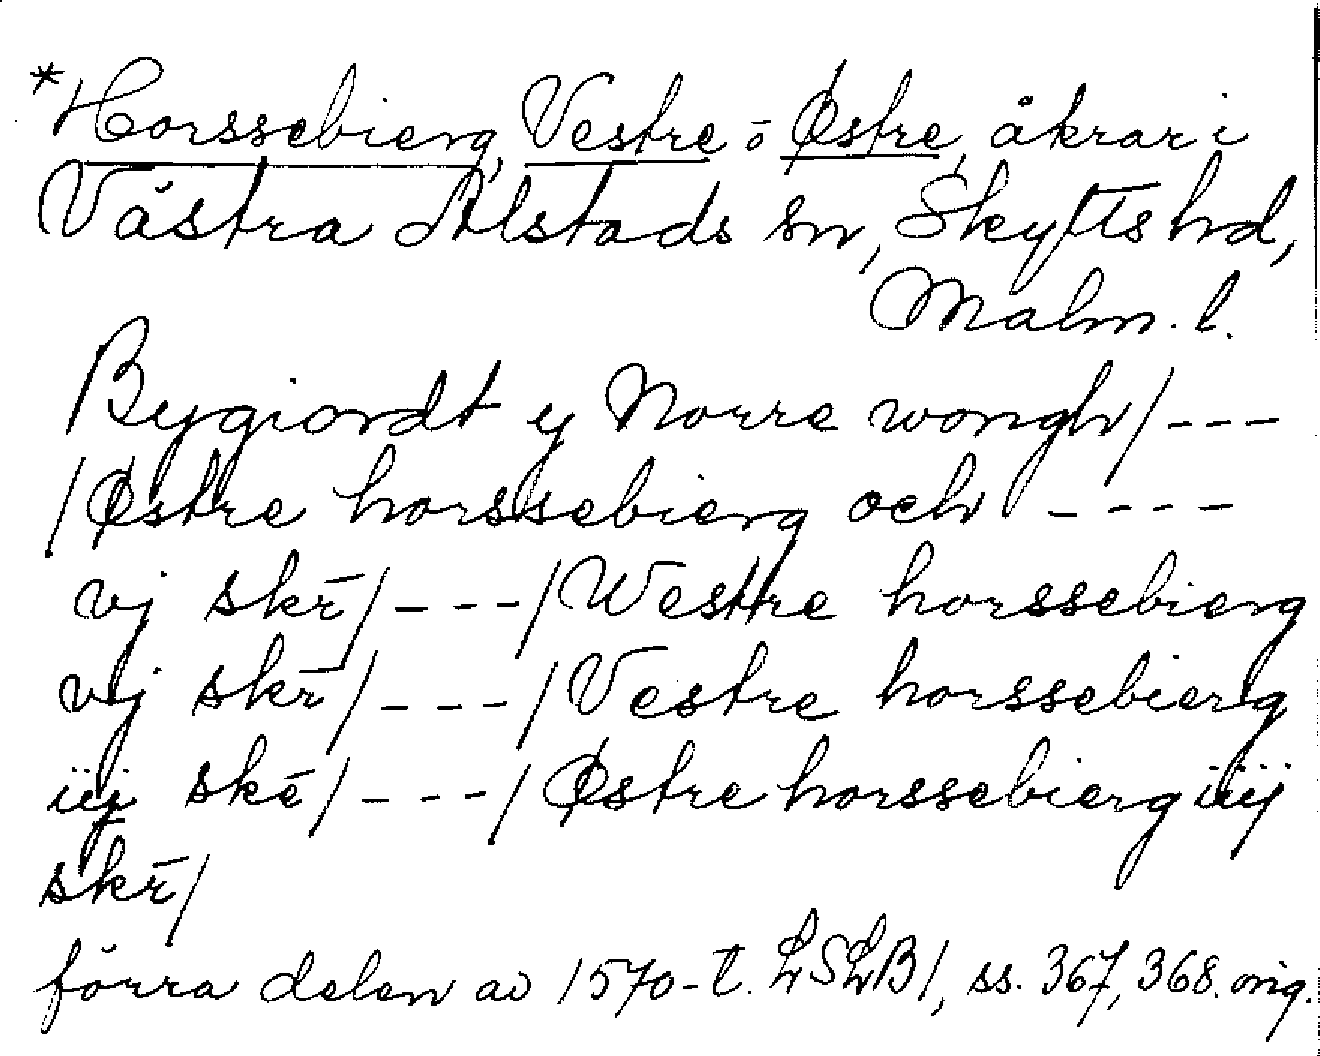 *Horssebierg, Vestre ō Østre, åkrar i
Västra Alstads sn, Skytts hd,
Malm. l.
Bygiordt y Norre wongh/---
/Østre horssebierg och ----
vj skr̄/---/Westre horssebierg
vij skr̄/---/Vestre horssebierg
iiij skē/---/Østre horssebierg iiij
skr̄/
förra delen av 1570-t. LSLB1, ss. 367, 368. orig.